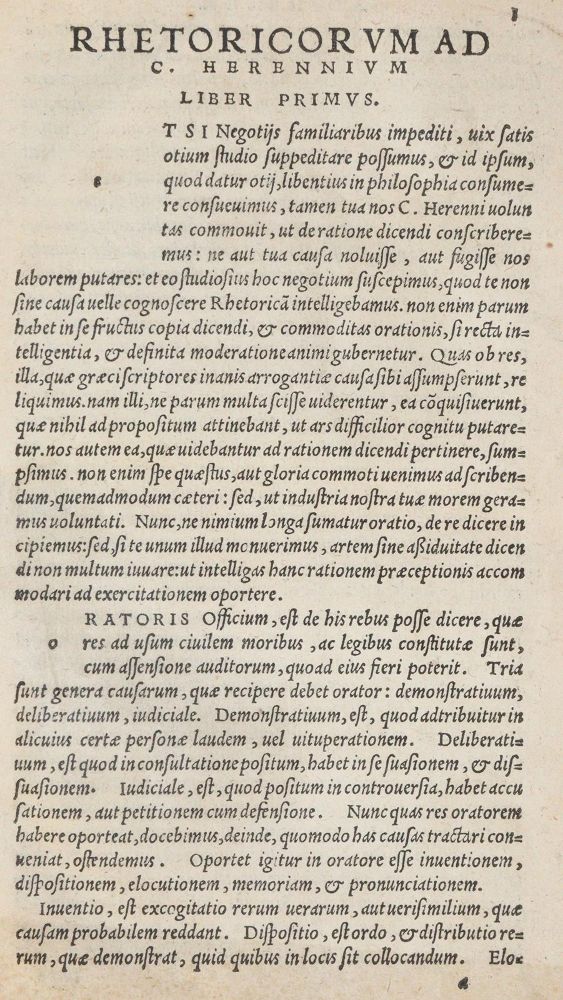 1
RHETORICORVM AD
C. HERENNIVM
LIBER PRIMVS.
T S I Negotijs familiaribus impediti, uix satis
otium studio suppeditare possumus, & id ipsum,
e quod datur otij, libentius in philosophia consume=
re consueuimus, tamen tua nos C. Herenni uolun
tas commouit, ut de ratione dicendi conscribere=
mus: ne aut tua causa noluisse, aut fugisse nos
laborem putares: et eo studiosius hoc negotium suscepimus, quod te non
sine causa uelle cognoscere Rhetoricā intelligebamus. non enim parum
habet in se fructus copia dicendi, & commoditas orationis, si recta in=
telligentia, & definita moderatione animi gubernetur. Quas ob res,
illa, quæ græci scriptores inanis arrogantiæ causa sibi assumpserunt, re
liquimus. nam illi, ne parum multa scisse uiderentur, ea cōquisiuerunt,
quæ nihil ad propositum attinebant, ut ars difficilior cognitu putare=
tur. nos autem ea, quæ uidebantur ad rationem dicendi pertinere, sum=
psimus. non enim spe quæstus, aut gloria commoti uenimus ad scriben=
dum, quemadmodum cæteri: sed, ut industria nostra tuæ morem gera=
mus uoluntati. Nunc, ne nimium longa sumatur oratio, de re dicere in
cipiemus: sed, si te unum illud monuerimus, artem sine aßiduitate dicen
di non multum iuuare: ut intelligas hanc rationem præceptionis accom
modari ad exercitationem oportere.
RATORIS Officium, est de his rebus posse dicere, quæ
o res ad usum ciuilem moribus, ac legibus constitutæ sunt,
cum assensione auditorum, quoad eius fieri poterit. Tria
sunt genera causarum, quæ recipere debet orator: demonstratiuum,
deliberatiuum, iudiciale. Demonstratiuum, est, quod adtribuitur in
alicuius certæ personæ laudem, uel uituperationem. Deliberati=
uum, est quod in consultatione positum, habet in se suasionem, & dis=
suasionem. Iudiciale, est, quod positum in controuersia, habet accu
sationem, aut petitionem cum defensione. Nunc quas res oratorem
habere oporteat, docebimus, deinde, quomodo has causas tractari con=
ueniat, ostendemus. Oportet igitur in oratore esse inuentionem,
dispositionem, elocutionem, memoriam, & pronunciationem.
Inuentio, est excogitatio rerum uerarum, aut uerisimilium, quæ
causam probabilem reddant. Dispositio, est ordo, & distributio re=
rum, quæ demonstrat, quid quibus in locis sit collocandum. Elo=
a